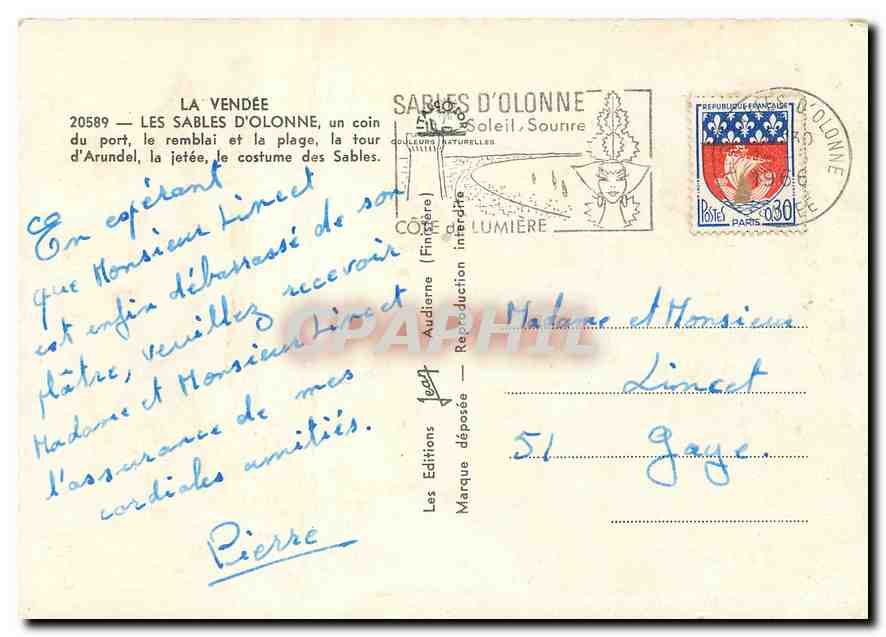 LA VENDÉE
20589 — LES SABLES D'OLONNE, un coin
du port, le remblai et la plage, la tour
d'Arundel, la jetée, le costume des Sables.
COULEURS NATURELLES
SABLES D'OLONNE
Soleil, Sourire
CÔTE de LUMIÈRE
D'OLONNE
REPUBLIQUE·FRANÇAISE
POSTES PARIS 0,30
En espérant
que Monsieur Lincet
est enfin débarrassé de son
plâtre, veuillez recevoir
Madame et Monsieur Lincet
l'assurance de mes
cordiales amitiés.
Pierre
Les Editions Jean Audierne (Finistère)
Marque déposée — Reproduction interdite
Madame et Monsieur
Lincet
51 Gaye.
CPAPHIL